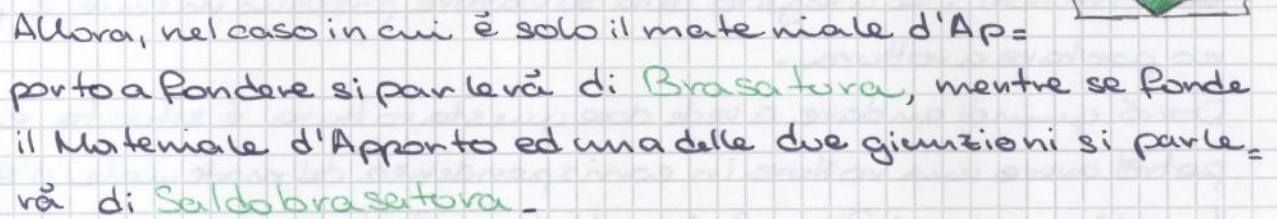 Allora, nel caso in cui è solo il materiale d'Ap=
porto a fondere si parlerà di Brasatura, mentre se fonde
il Materiale d'Apporto ed una delle due giunzioni si parle=
rà di Saldobrasatura.